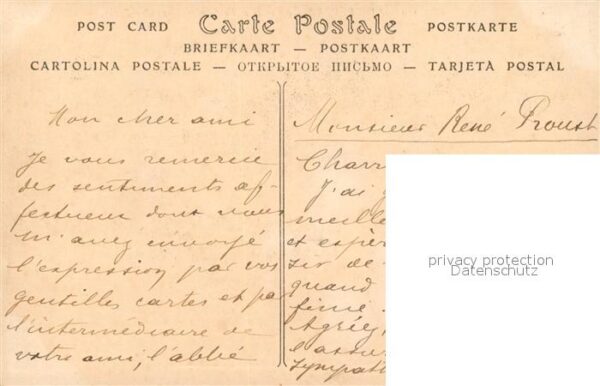 POST CARD Carte Postale POSTKARTE
BRIEFKAART — POSTKAART
CARTOLINA POSTALE — ОТКРЫТОЕ ПИСЬМО — TARJETA POSTAL
Mon cher ami
Je vous remercie
des sentiments af-
fectueux dont vous
m'avez envoyé
l'expression par vos
gentilles cartes et par
l'intermédiaire de
votre ami, l'abbé
Monsieur René Proust
Charr
J'ai
meille
et espér
sir de
quand
fini
Agréez
l'assu
sympath
privacy protection
Datenschutz